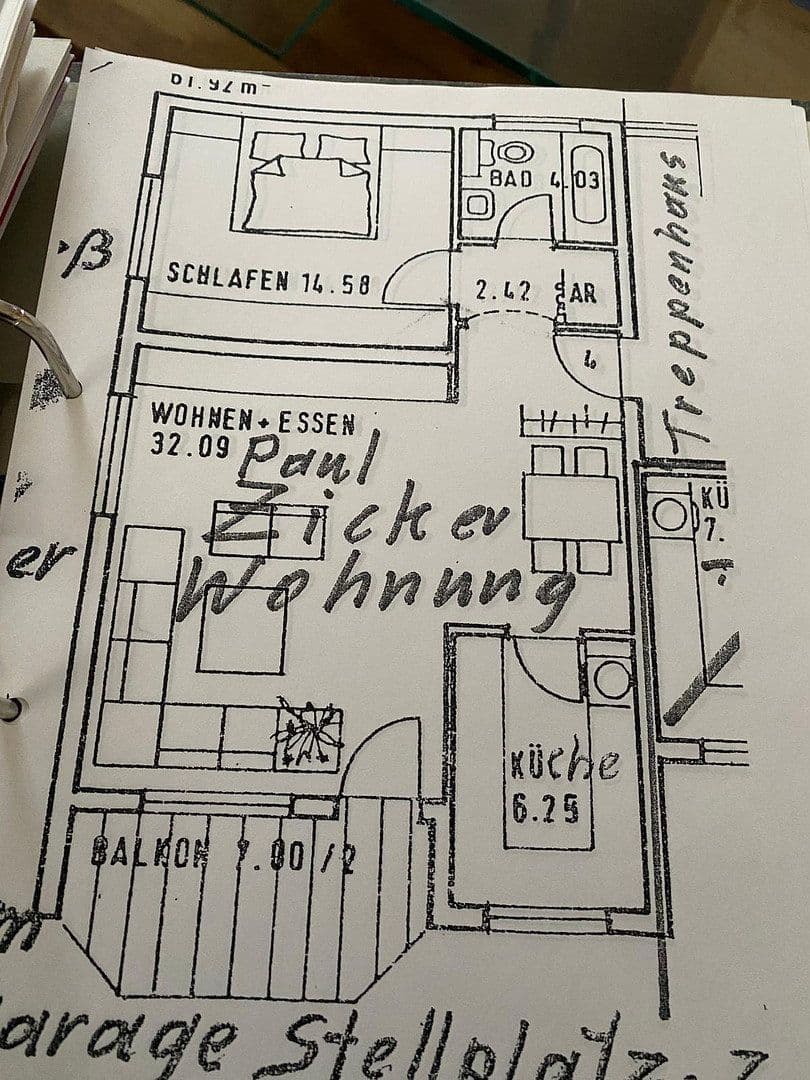 BAD 4.03
Treppenhaus
ß
SCHLAFEN 14.58
2.42
AR
WOHNEN + ESSEN
32.09
Paul
Zicker
Wohnung
KÜ
7.
er
KÜche
6.25
BALKON 7.80 /2
Garage Stellplatz